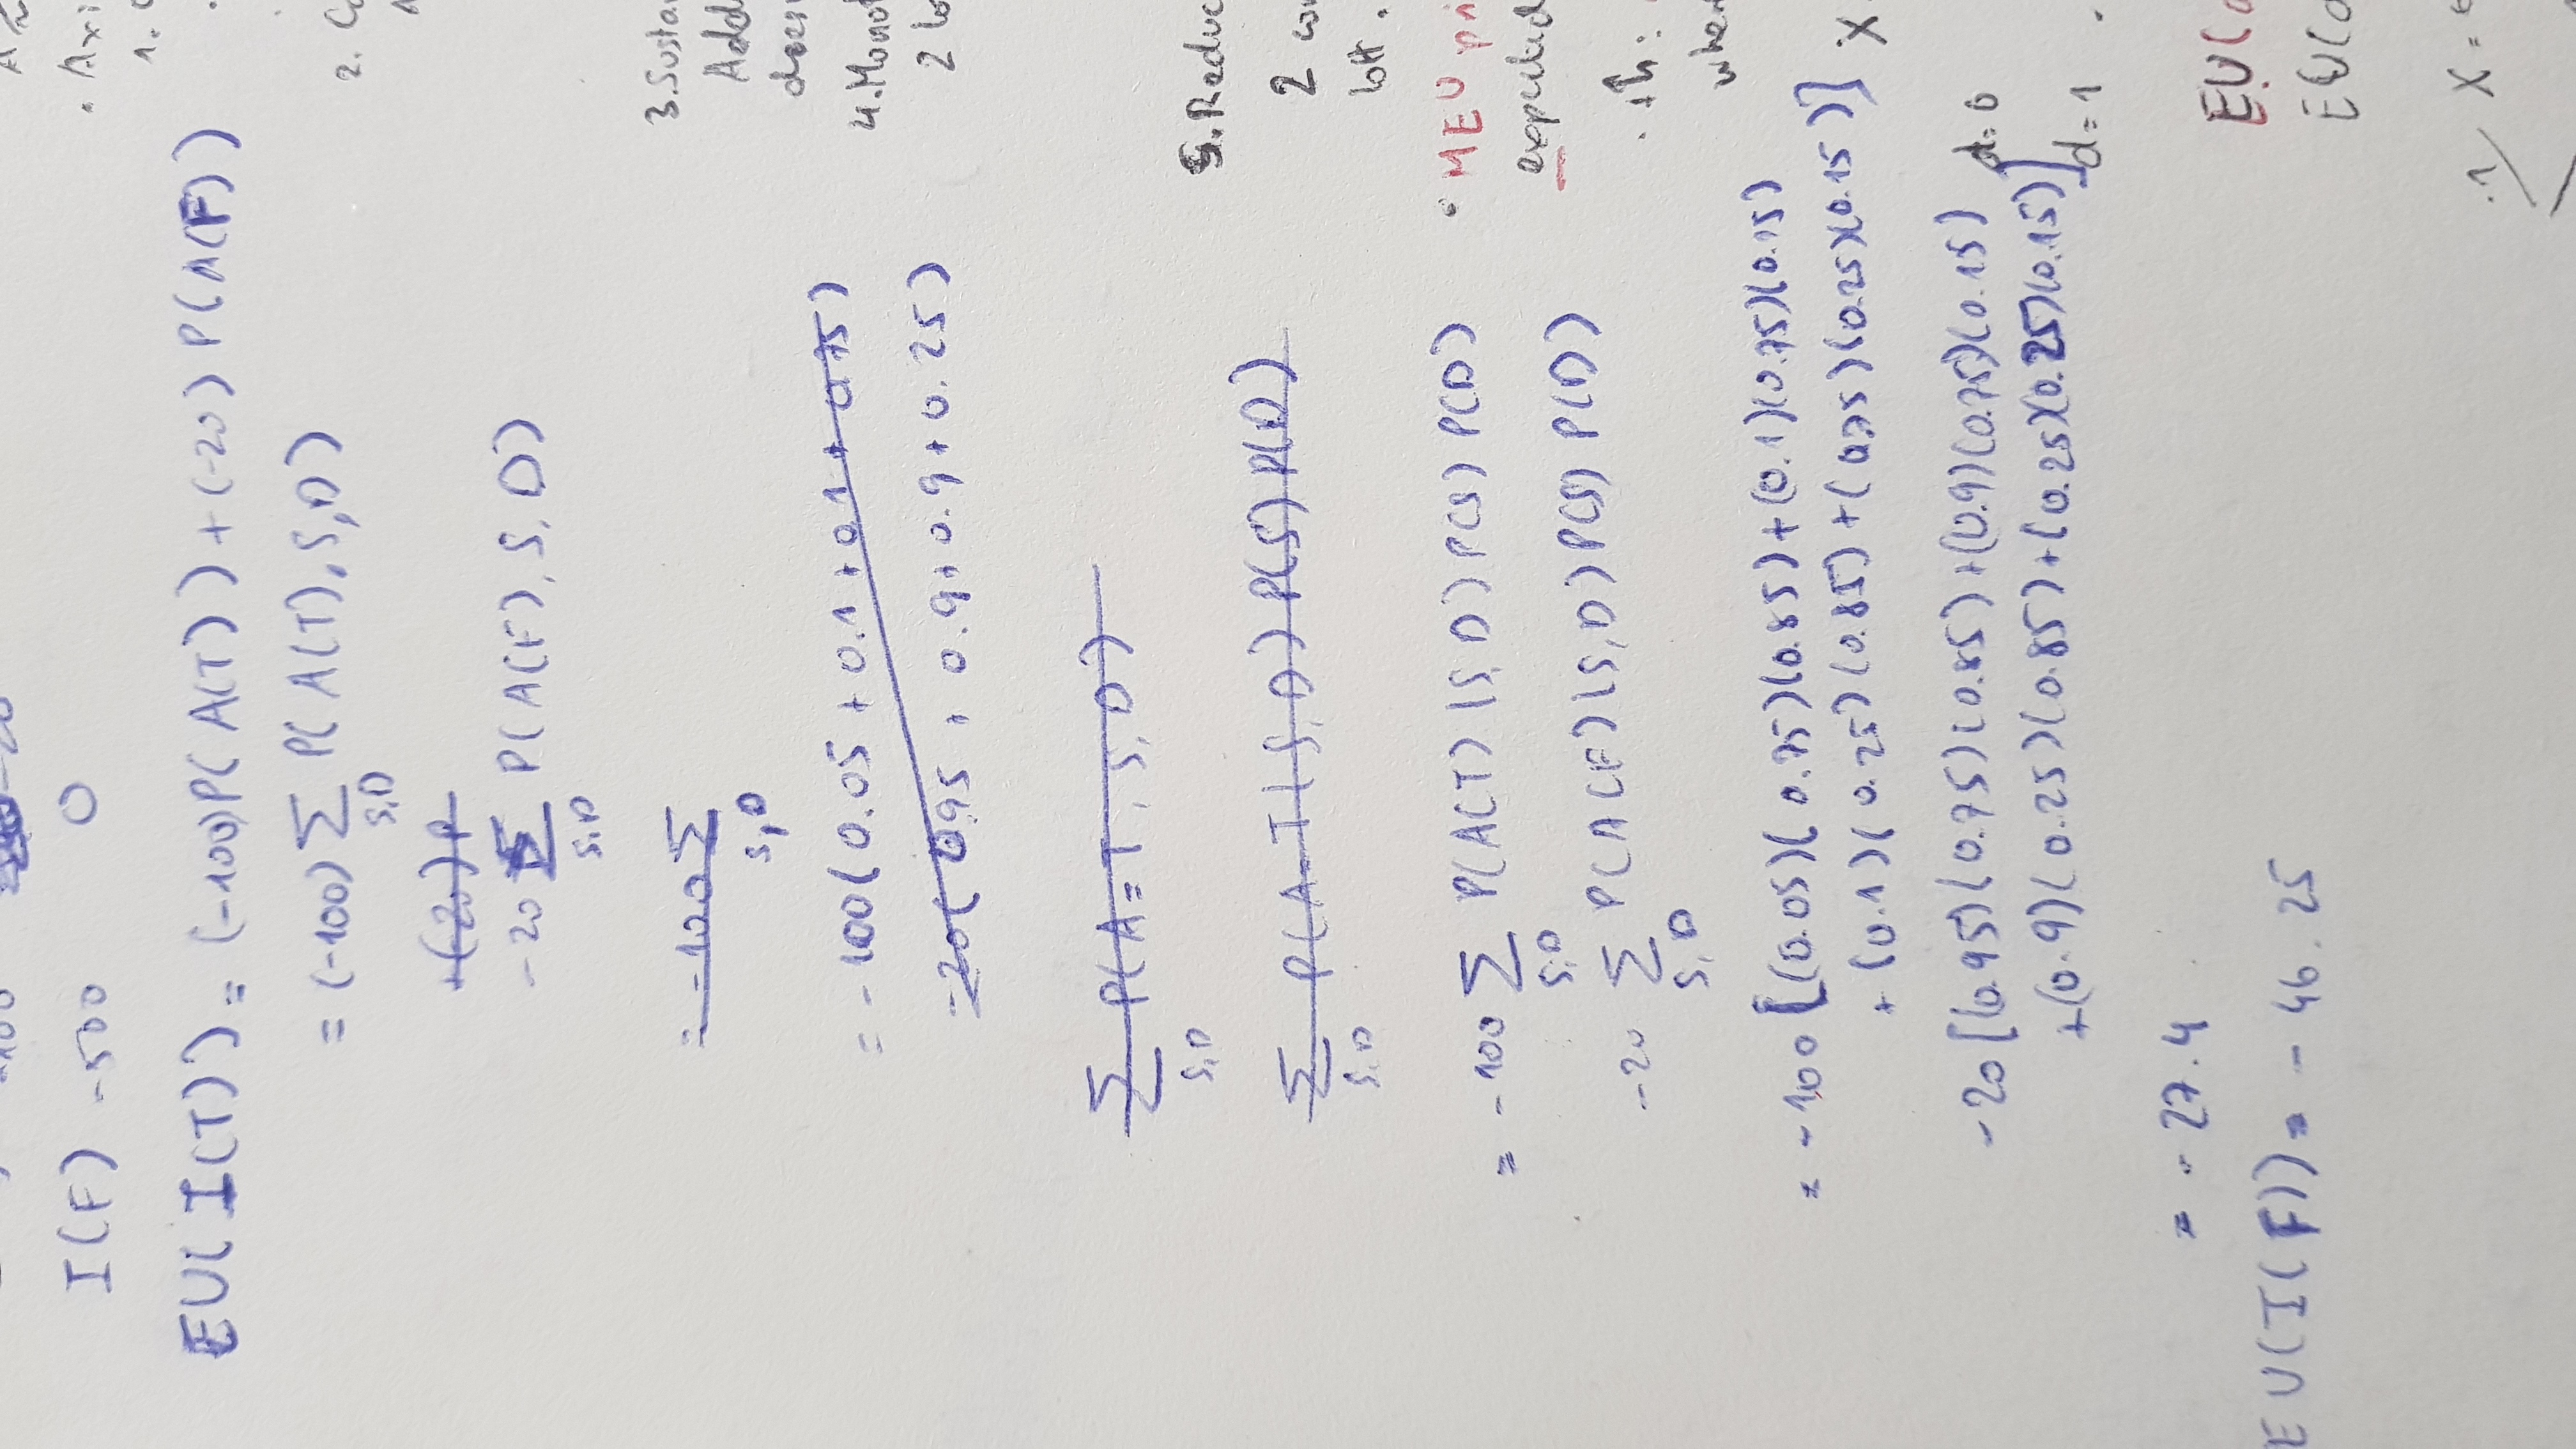 -100 -20
I(F) -500 0
EU(I(T)) = (-100)P(A(T)) + (-20) P(A(F))
= (-100) Σ P(A(T), S, D)
S,D
+(20) P
-20 Σ P(A(F), S, D)
S,D
= -100 Σ
S,D
= -100(0.05 + 0.1 + 0.1 + 0.75)
-20(0.95 + 0.9 + 0.9 + 0.25)
Σ P(A=T, S, D)
S,D
Σ P(A=T|S, D) P(S) P(D)
S,D
= -100 Σ P(A(T)|S, D) P(S) P(D)
S,D
-20 Σ P(A(F)|S, D) P(S) P(D)
S,D
= -100 [(0.05)(0.75)(0.85) + (0.1)(0.75)(0.15)
+ (0.1)(0.25)(0.85) + (0.75)(0.25)(0.15)]
-20 [(0.95)(0.75)(0.85) + (0.9)(0.75)(0.15)
+ (0.9)(0.25)(0.85) + (0.25)(0.25)(0.15)]
= -27.4
EU(I(F)) = -46.25
A ≈
. Axi
1.
2. Co
3. Susta
Add
doesn
4. Monot
2 lo
5. Reduc
2 con
lott.
• MEU pri
expected
. th:
where
X
d=0
d=1
EU(
EU(
.1 X =